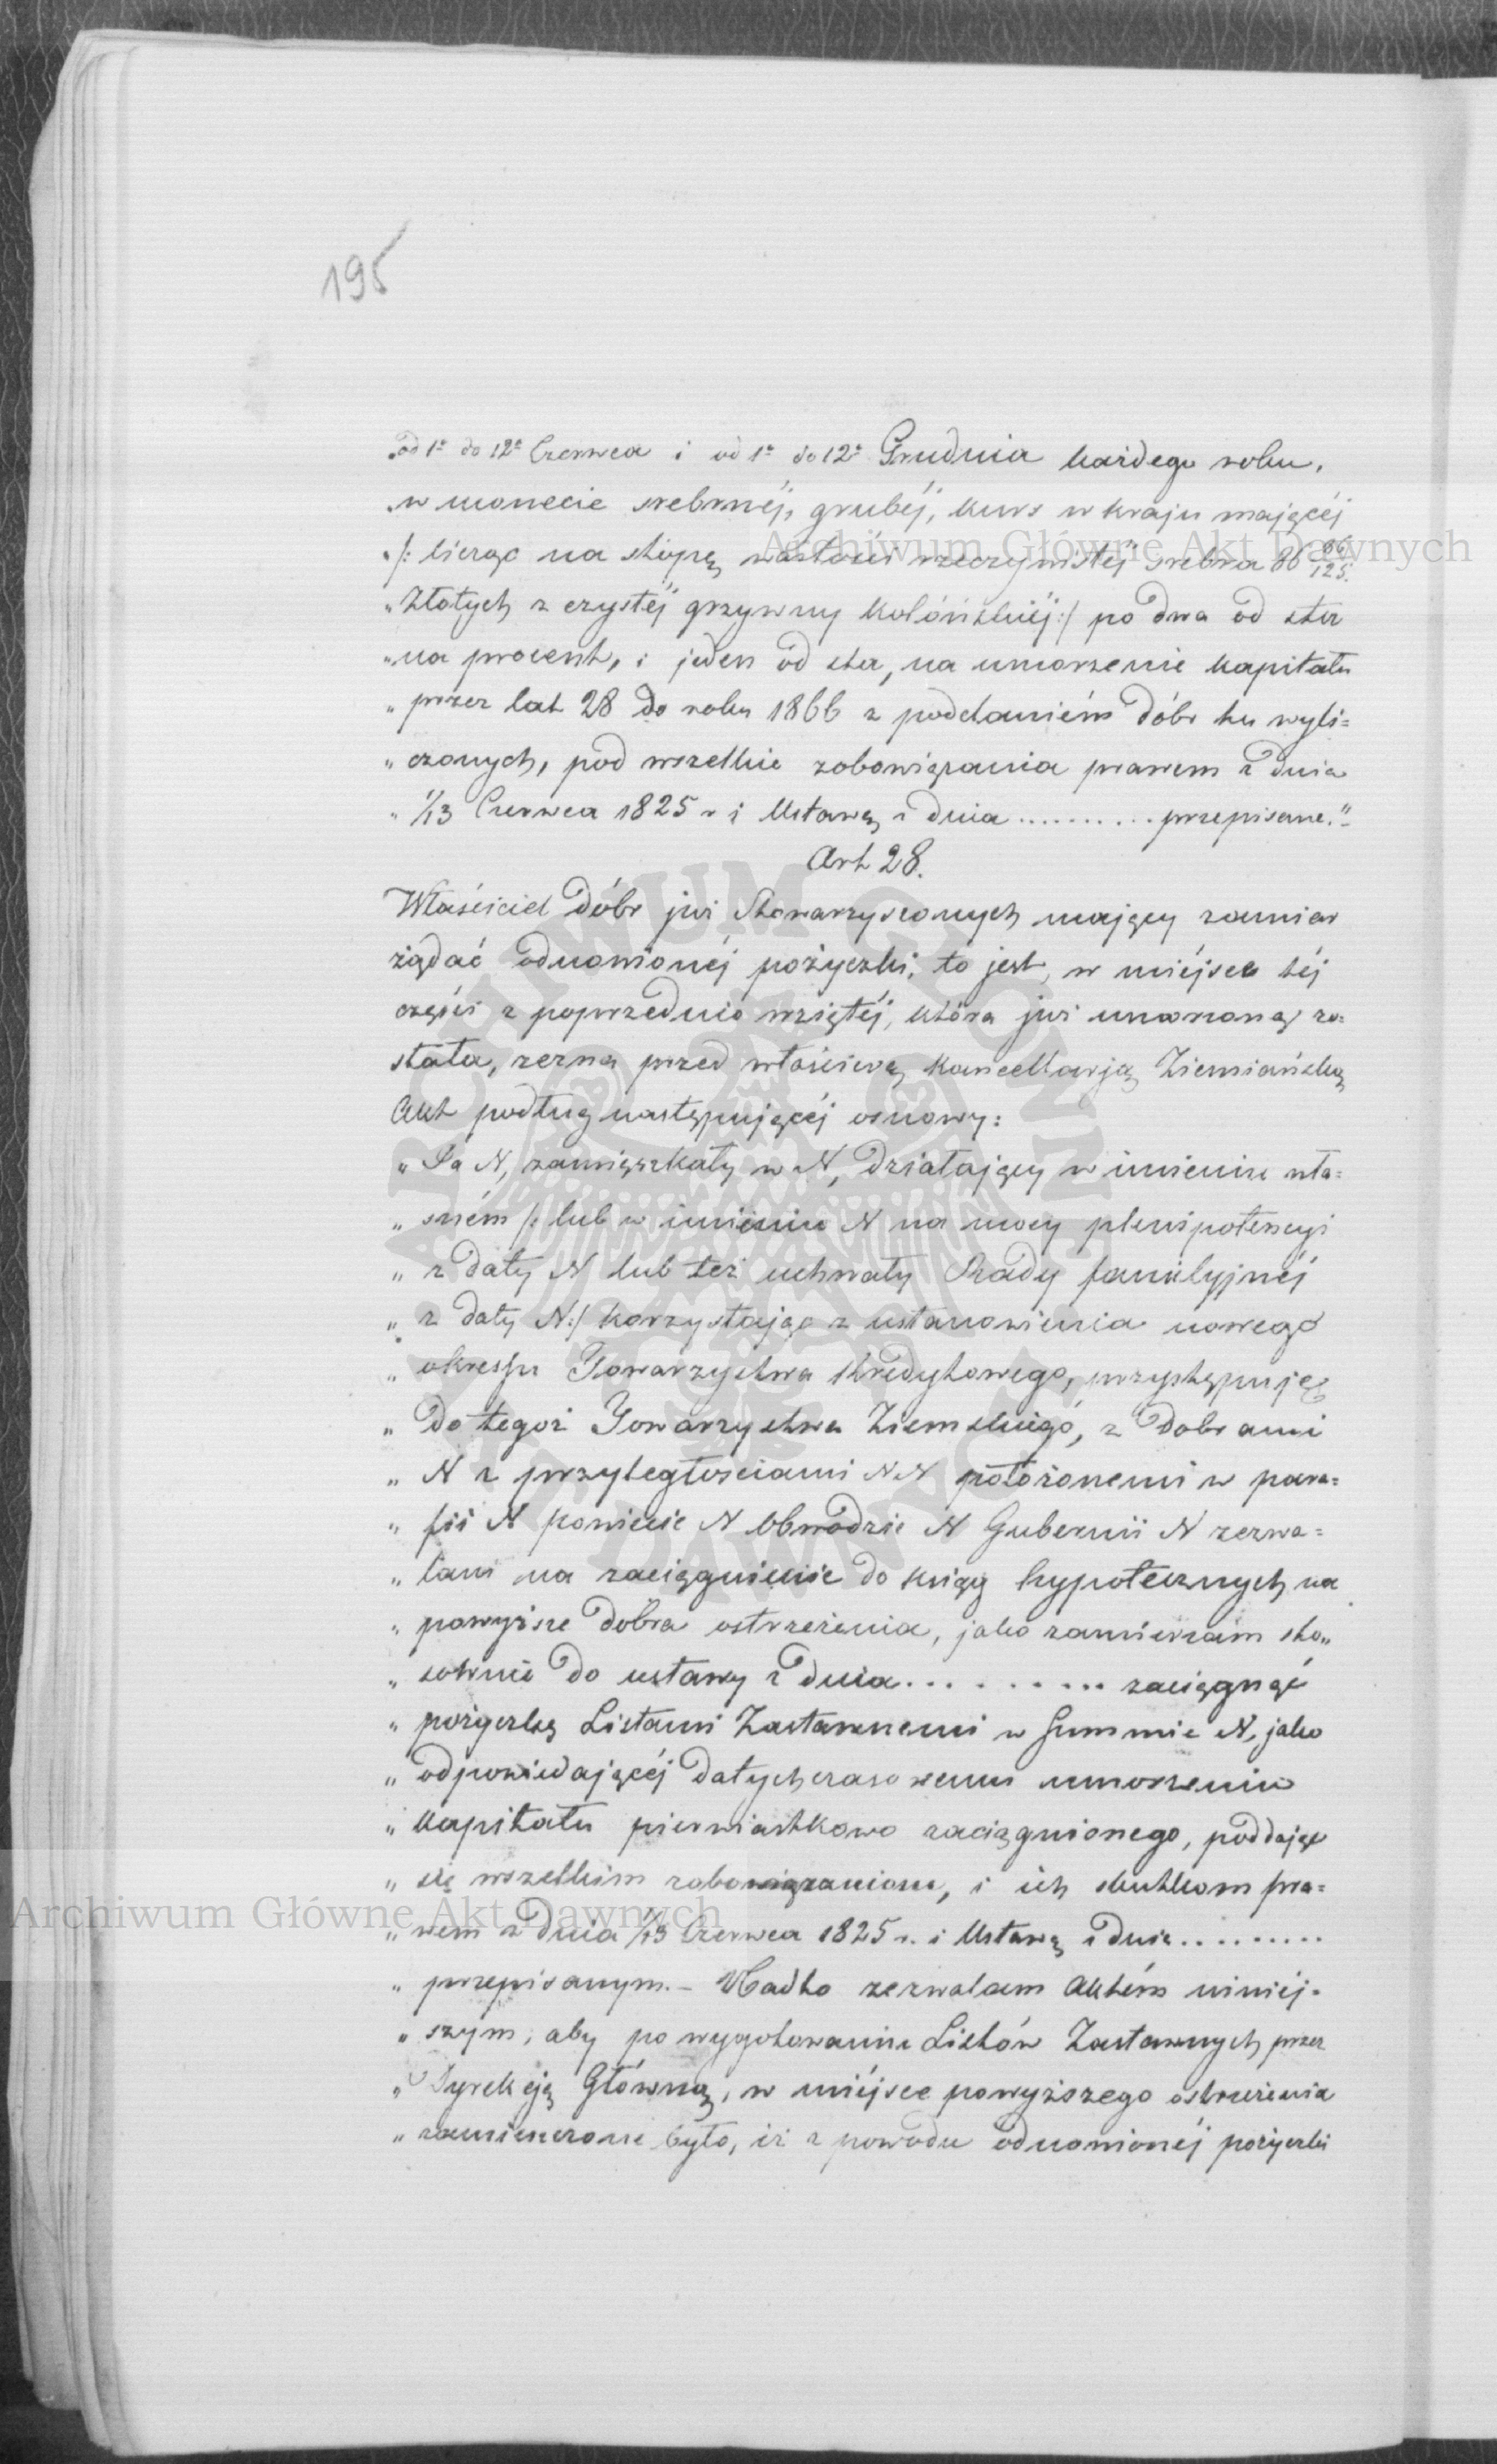 195
„od 1º do 12º Czerwca i od 1º do 12º Grudnia każdego roku,
„w monecie srebrnéj, grubéj, kurs w kraju mającéj
„/: licząc na stopę wartości rzeczywistéj srebra 86 86/125
„Złotych z czystéj grzywny Kolońskiéj :/ po dwa od sta
„na procent, i jeden od sta, na umorzenie kapitału
„przez lat 28 do roku 1866 z poddaniem dóbr tu wyli=
„czonych, pod wszelkie zobowiązania prawem z dnia
„1/13 Czerwca 1825 r i Ustawą z dnia .......... przepisane."
Art 28.
Właściciel dóbr już Stowarzyszonych mający zamiar
żądać odnowionéj pożyczki, to jest, w miéjsce téj
części z poprzednio wziętéj, która już umorzoną zo=
stała, zezna przed właściwą Kancellarją Ziemiańską
Akt podług następującéj osnowy:
„Ja N, zamieszkały w N, działający w imieniu wła=
„sném /: lub w imieniu N na mocy plenipotencyi
„z daty N lub też uchwały Rady familyjnéj
„z daty N :/ korzystając z ustanowienia nowego
„okressu Towarzystwa Kredytowego, przystępuję
„do tegoż Towarzystwa Ziemskiego, z Dobrami
„N z przyległościami NN położonemi w para=
„fii N powiecie N Obwodzie N Gubernii N zezwa=
„lam na zaciągnienie do ksiąg hypotecznych na
„powyższe dobra ostrzeżenia, jako zamierzam sto„
„sownie do ustawy z dnia .......... zaciągnąć
„pożyczkę Listami Zastawnemi w Summie N, jako
„odpowiedającéj dotychczasowemu umorzeniu
„kapitału pierwiastkowo zaciągnionego, poddając
„się wszelkim zobowiązaniom, i ich skutkom pra=
„wem z dnia 1/13 Czerwca 1825 r. i Ustawą z dnia .........
„przepisanym. – Nadto zezwalam Aktém niniéj=
„szym, aby po wygotowaniu Listów Zastawnych przez
„Dyrekcję Główną, w miéjsce powyższego ostrzeżenia
„zamieszczone było, iż z powodu odnowionéj pożyczki
Archiwum Główne Akt Dawnych
Archiwum Główne Akt Dawnych
ARCHIWUM GŁÓWNE AKT DAWNYCH